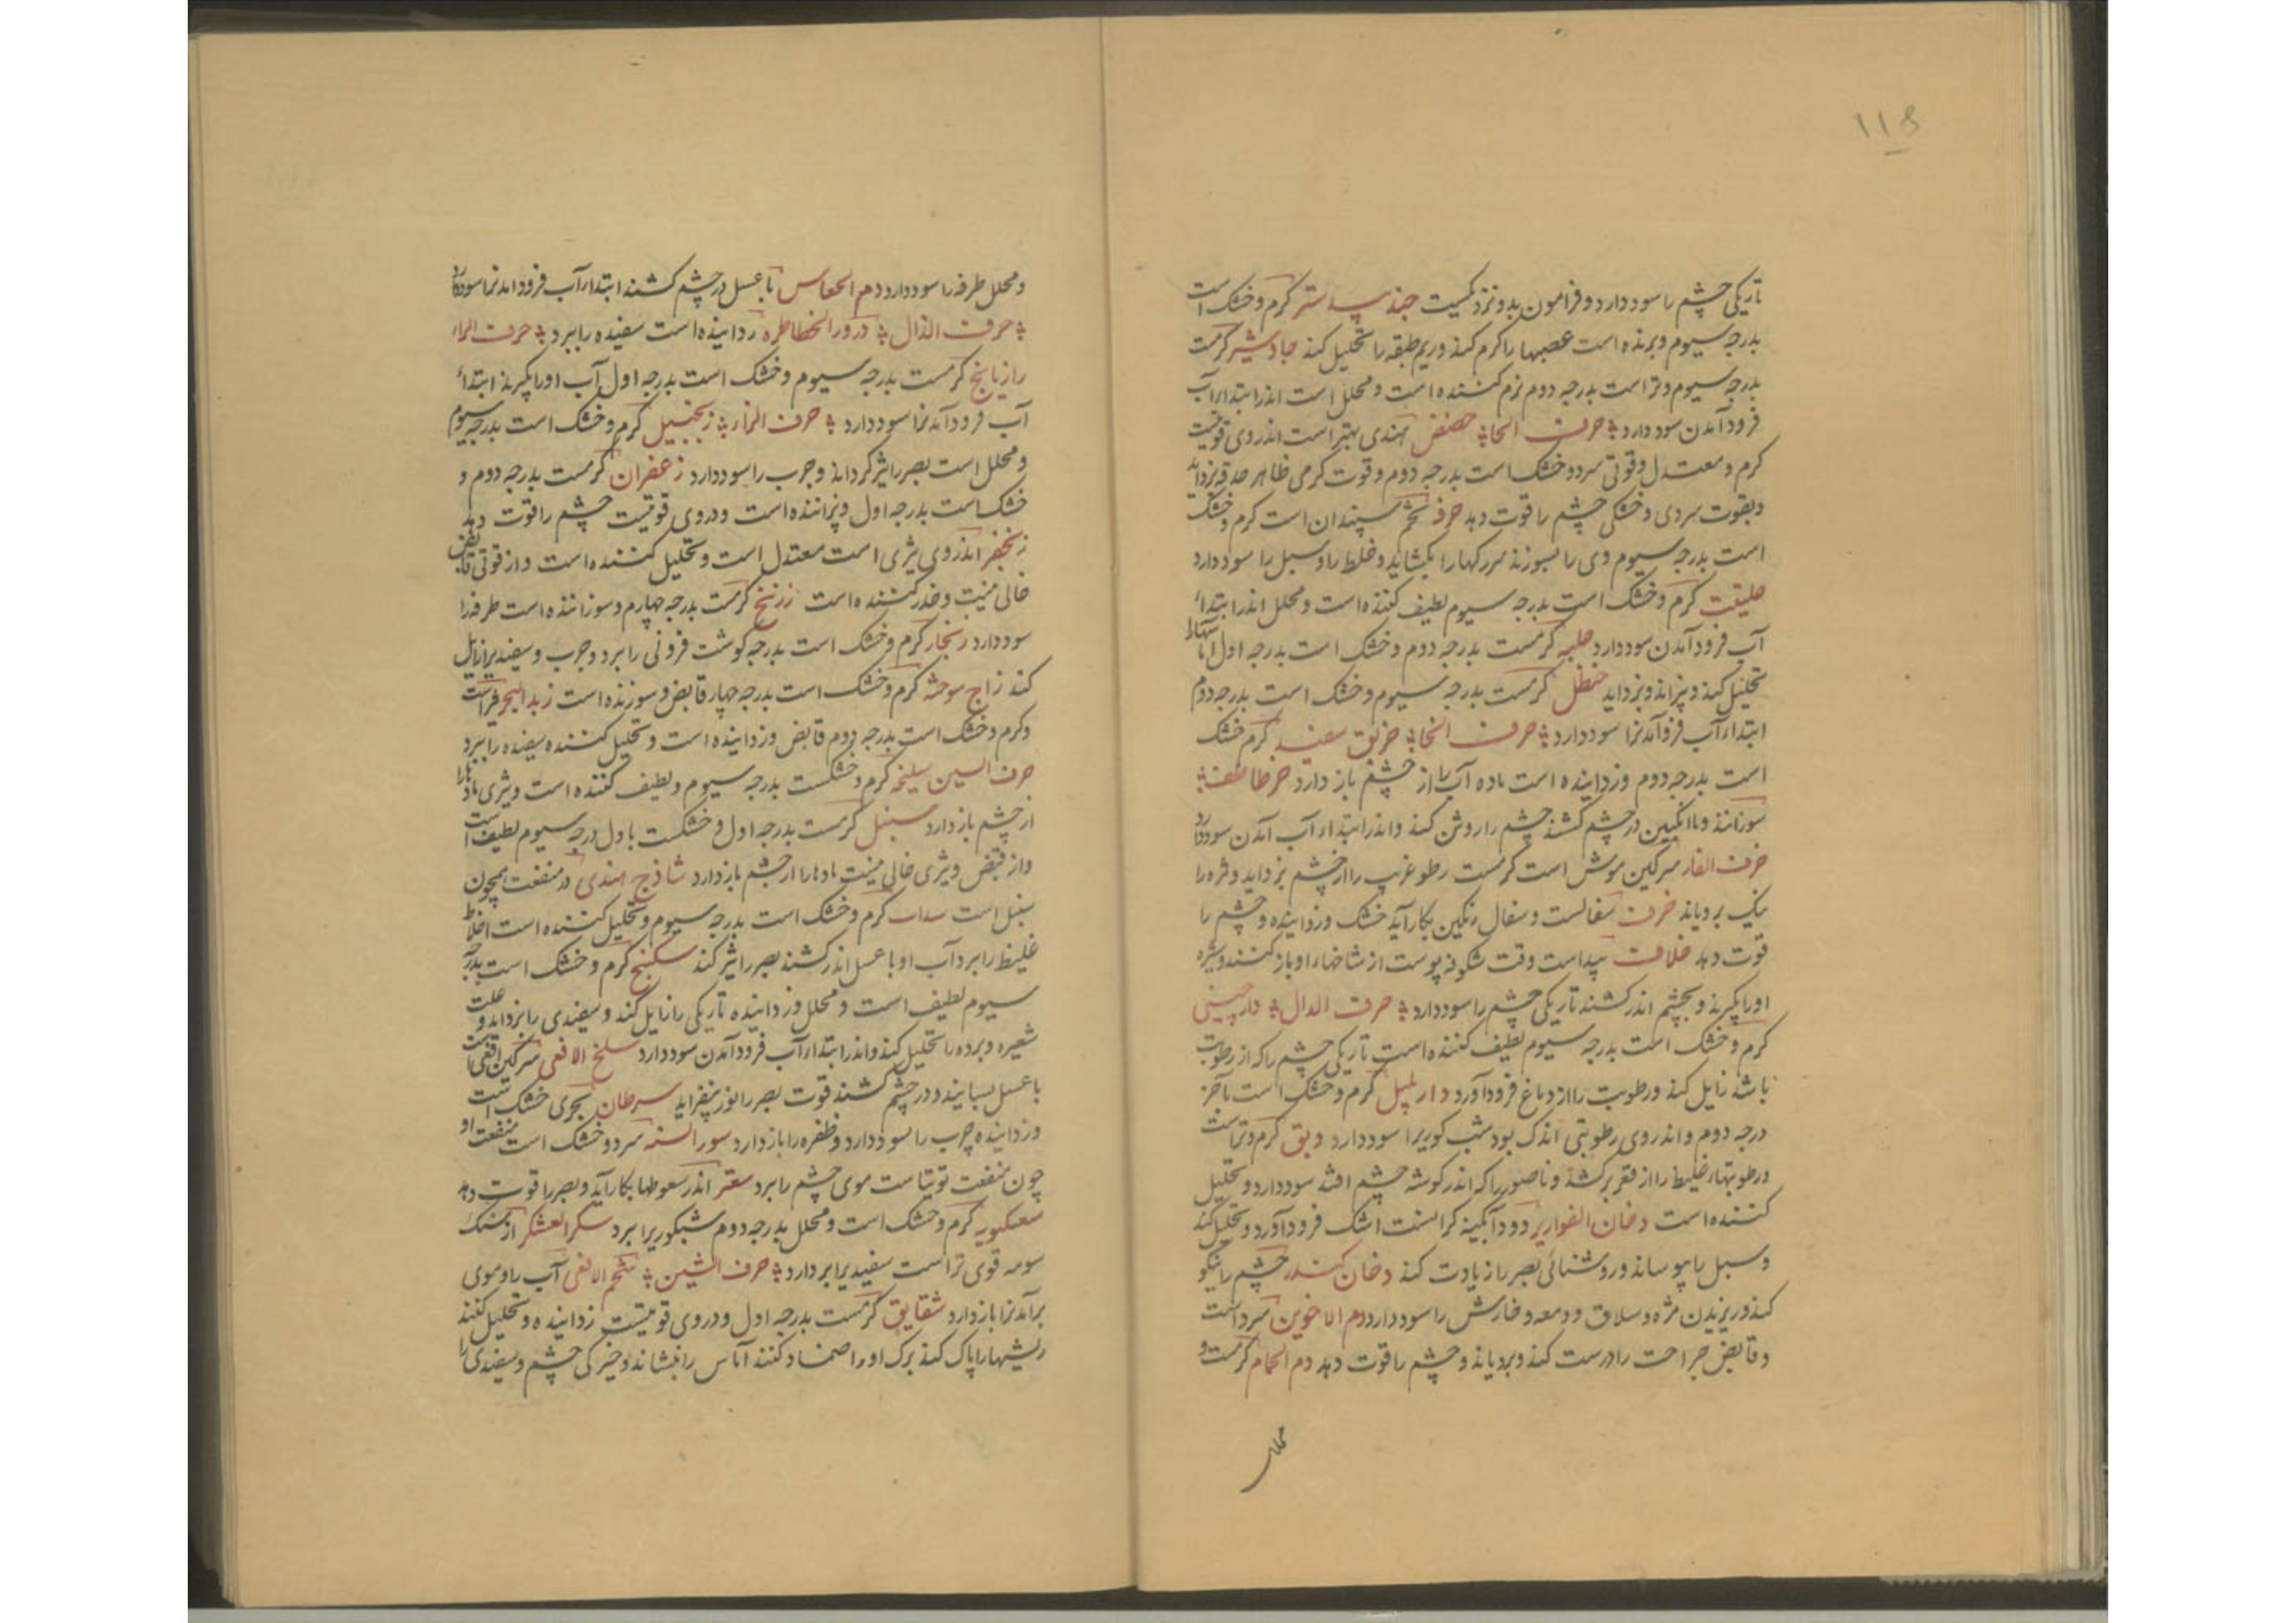 ۱۱۵
تاریکی چشم را سود دارد و فرامون بدو نزدیکست جند بیدستر کرم و خشک است
بدرجه سیوم و برنده است عصبها را کرم کند و ریم طبقه را تحلیل کند جاوشیر کرمست
بدرجه سیوم و تر است بدرجه دوم نرم کننده است و محلل است اندر ابتداء آب
فرود آمدن سود دارد حرف الحا حضض هندی بهتر است اندر وی قوتیست
کرم و معتدل وقوتی سرد و خشک است بدرجه دوم و قوت کرمی ظاهر حدقه بزداید
و بقوت سردی و خشکی چشم را قوت دهد حرف تخم سپندان است کرم و خشک
است بدرجه سیوم وی را بسوزند سررکها را بکشاید و غلظ را و سبل را سود دارد
حلیتیت کرم و خشک است بدرجه سیوم لطیف کننده است و محلل اندر ابتداء
آب فرود آمدن سود دارد حلبه کرمست بدرجه دوم و خشک است بدرجه اول آماسها را
تحلیل کند و پزاند و بزداید حنظل کرمست بدرجه سیوم و خشک است بدرجه دوم
ابتداء آب فرو آمدنرا سود دارد حرف الخا خربق سفید کرم خشک
است بدرجه دوم و زداینده است ماده آب را از چشم باز دارد خرطاطیف
سوزانند و با انکبین در چشم کشند چشم را روشن کند و اندر ابتداء آب آمدن سود دارد
خرف الفار سرکین موش است کرمست رطوبت غریب را از چشم بزداید و مژه را
نیک برویاند خزف سفالست و سفال رنکین بکار آید خشک و زداینده و چشم را
قوت دهد خلاف بید است وقت شکوفه پوست از شاخهاء او باز کنند و شیره
او را بکیرند و بچشم اندر کشند تاریکی چشم را سود دارد حرف الدال دارچینی
کرم و خشک است بدرجه سیوم لطیف کننده است تاریکی چشم را که از رطوبت
باشد زایل کند و رطوبت را از دماغ فرود آورد دارپلپل کرم و خشک است بآخر
درجه دوم و اندر وی رطوبتی اندک بود شب کوریرا سود دارد دبق کرم و تر است
و رطوبتهاء غلیظ را از قعر برکشد و ناصور را که اندر کوشه چشم افتد سود دارد و تحلیل
کننده است دخان القواریر دود آبکینه کرانست اشک فرود آورد و تحلیل کند
و سبل را بپوساند و روشنائی بصر را زیادت کند دخان کندر چشم را نیکو
کند و ریزیدن مژه و سلاق و دمعه و خارش را سود دارد دم الاخوین سرد است
و قابض جراحت را درست کند و برویاند و چشم را قوت دهد دم الحمام کرمست و
محلل
و محلل طرفه را سود دارد دم الحفاس با عسل در چشم کشند ابتداء آب فرود آمدنرا سود دارد
حرف الذال ذرور الخطاطره زداینده است سفیده را ببرد حرف الراء
رازیانج کرمست بدرجه سیوم و خشک است بدرجه اول آب او را بکیرند ابتداء
آب فرود آمدنرا سود دارد حرف الزاء زنجبیل کرم و خشک است بدرجه سیوم
و محلل است بصر را تیز کرداند و جرب را سود دارد زعفران کرمست بدرجه دوم و
خشک است بدرجه اول و پزاننده است و در وی قوتیست چشم را قوت دهد
زنجفر اندر وی تیزی است معتدل است و تحلیل کننده است و از قوتی قابض
خالی نیست و خدر کننده است زرنیخ کرمست بدرجه چهارم و سوزاننده است طرفه را
سود دارد زنجار کرم و خشک است بدرجه کوشت فزونی را ببرد و جرب و سفیدیرا زایل
کند زاج سوخته کرم و خشک است بدرجه چهار قابض و سوزنده است زبد البحر
و کرم و خشک است بدرجه دوم قابض و زداینده است و تحلیل کننده سفیده را ببرد
حرف السین سلیخه کرم و خشکست بدرجه سیوم و لطیف کننده است و تیزی مادها را
از چشم باز دارد سنبل کرمست بدرجه اول و خشکست باول درجه سیوم لطیف است
و از قبض و تیزی خالی نیست مادها را از چشم باز دارد شاذج هندی در منفعت همچون
سنبل است سداب کرم و خشک است بدرجه سیوم و تحلیل کننده است اخلاط
غلیظ را ببرد آب او با عسل اندر کشند بصر را تیز کند سکبینج کرم و خشک است بدرجه
سیوم لطیف است و محلل و زداینده تاریکی را زایل کند و سفیدی را بزداید و علت
شعیره و برده را تحلیل کند و اندر ابتداء آب فرود آمدن سود دارد سلخ الافعی سرکین افعی است
با عسل بسایند و در چشم کشند قوت بصر را نور بیفزاید سرطان بحری خشک است
و زداینده جرب را سود دارد و ظفره را باز دارد سورالسنه سرد و خشک است منفعت او
چون منفعت توتیا است موی چشم را ببرد سعتر اندر سعوطها بکار آید و بصر را قوت دهد
کرم و خشک است و محلل بدرجه دوم شبکوریرا ببرد سکر العشکر از سنک
سومه قوی تر است سفیدیرا بر دارد حرف الشین شحم الافعی آب را و موی
برآمدنرا باز دارد شقایق کرمست بدرجه اول و در وی قوتیست زداینده و تحلیل کنند
ریشها را پاک کند برک او را ضماد کنند آماس را بنشاند و خیرکی چشم و سفیدی را